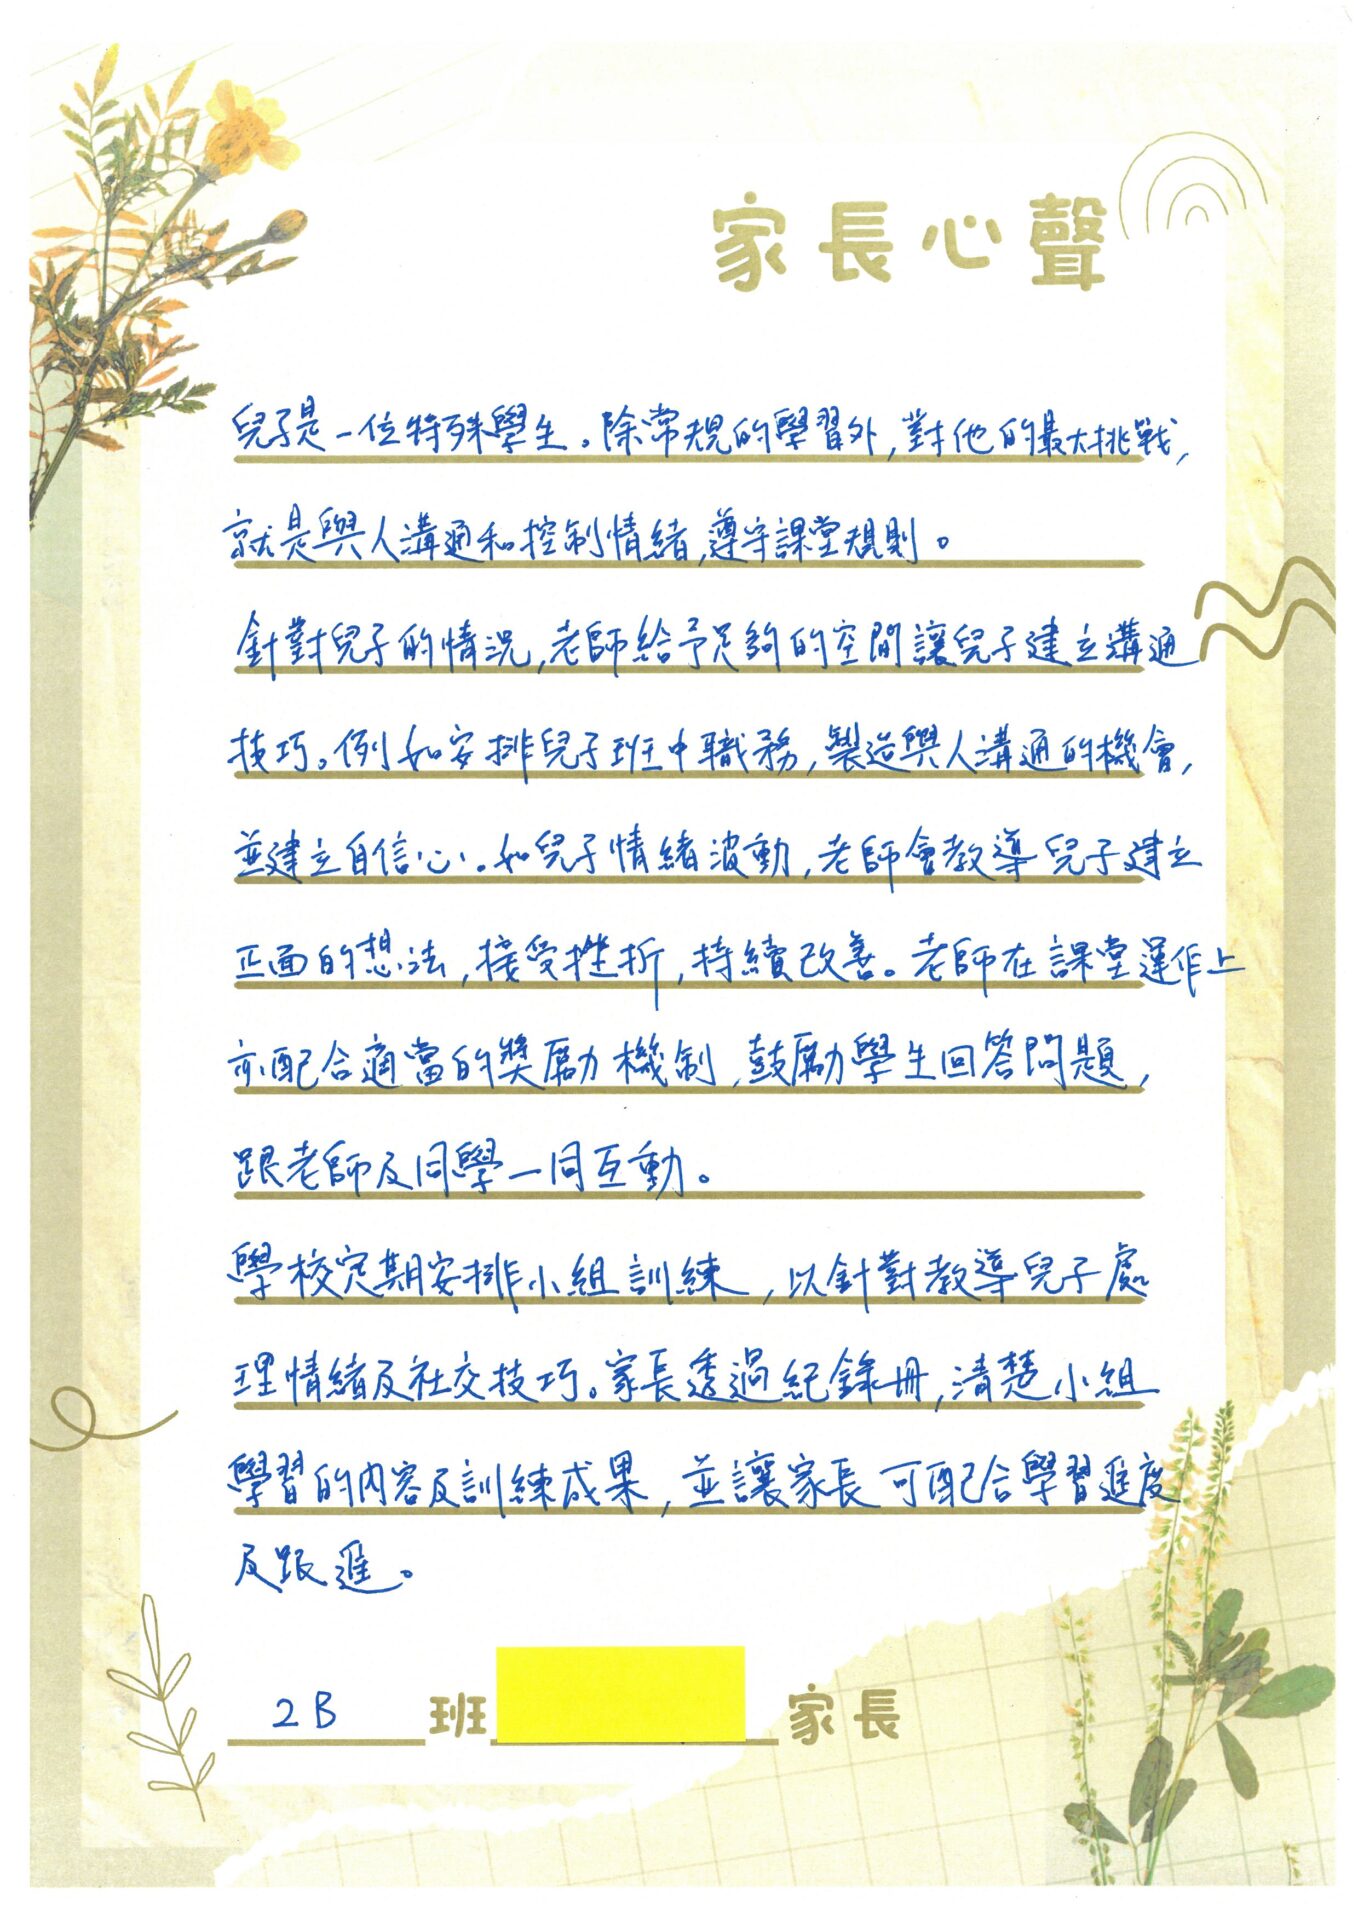 家長心聲
兒子是一位特殊學生。除常規的學習外,對他的最大挑戰,
就是與人溝通和控制情緒,遵守課堂規則。
針對兒子的情況,老師給予足夠的空間讓兒子建立溝通
技巧。例如安排兒子班中職務,製造與人溝通的機會,
並建立自信心。如兒子情緒波動,老師會教導兒子建立
正面的想法,接受挫折,持續改善。老師在課堂運作上
亦配合適當的獎勵機制,鼓勵學生回答問題,
跟老師及同學一同互動。
學校定期安排小組訓練,以針對教導兒子處
理情緒及社交技巧。家長透過紀錄冊,清楚小組
學習的內容及訓練成果,並讓家長可配合學習進度
及跟進。
2B 班 家長